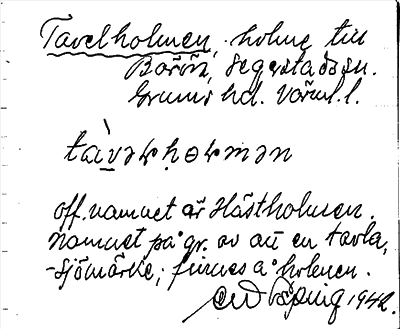 Tavelholmen, holme till
Borön, Segerstads sn.
Grums hd. Värml. l.
tàvəɽhoɽmən
off. namnet är Hästholmen.
Namnet på gr. av att en tavla,
-sjömärke, finnes å holmen.
1942.